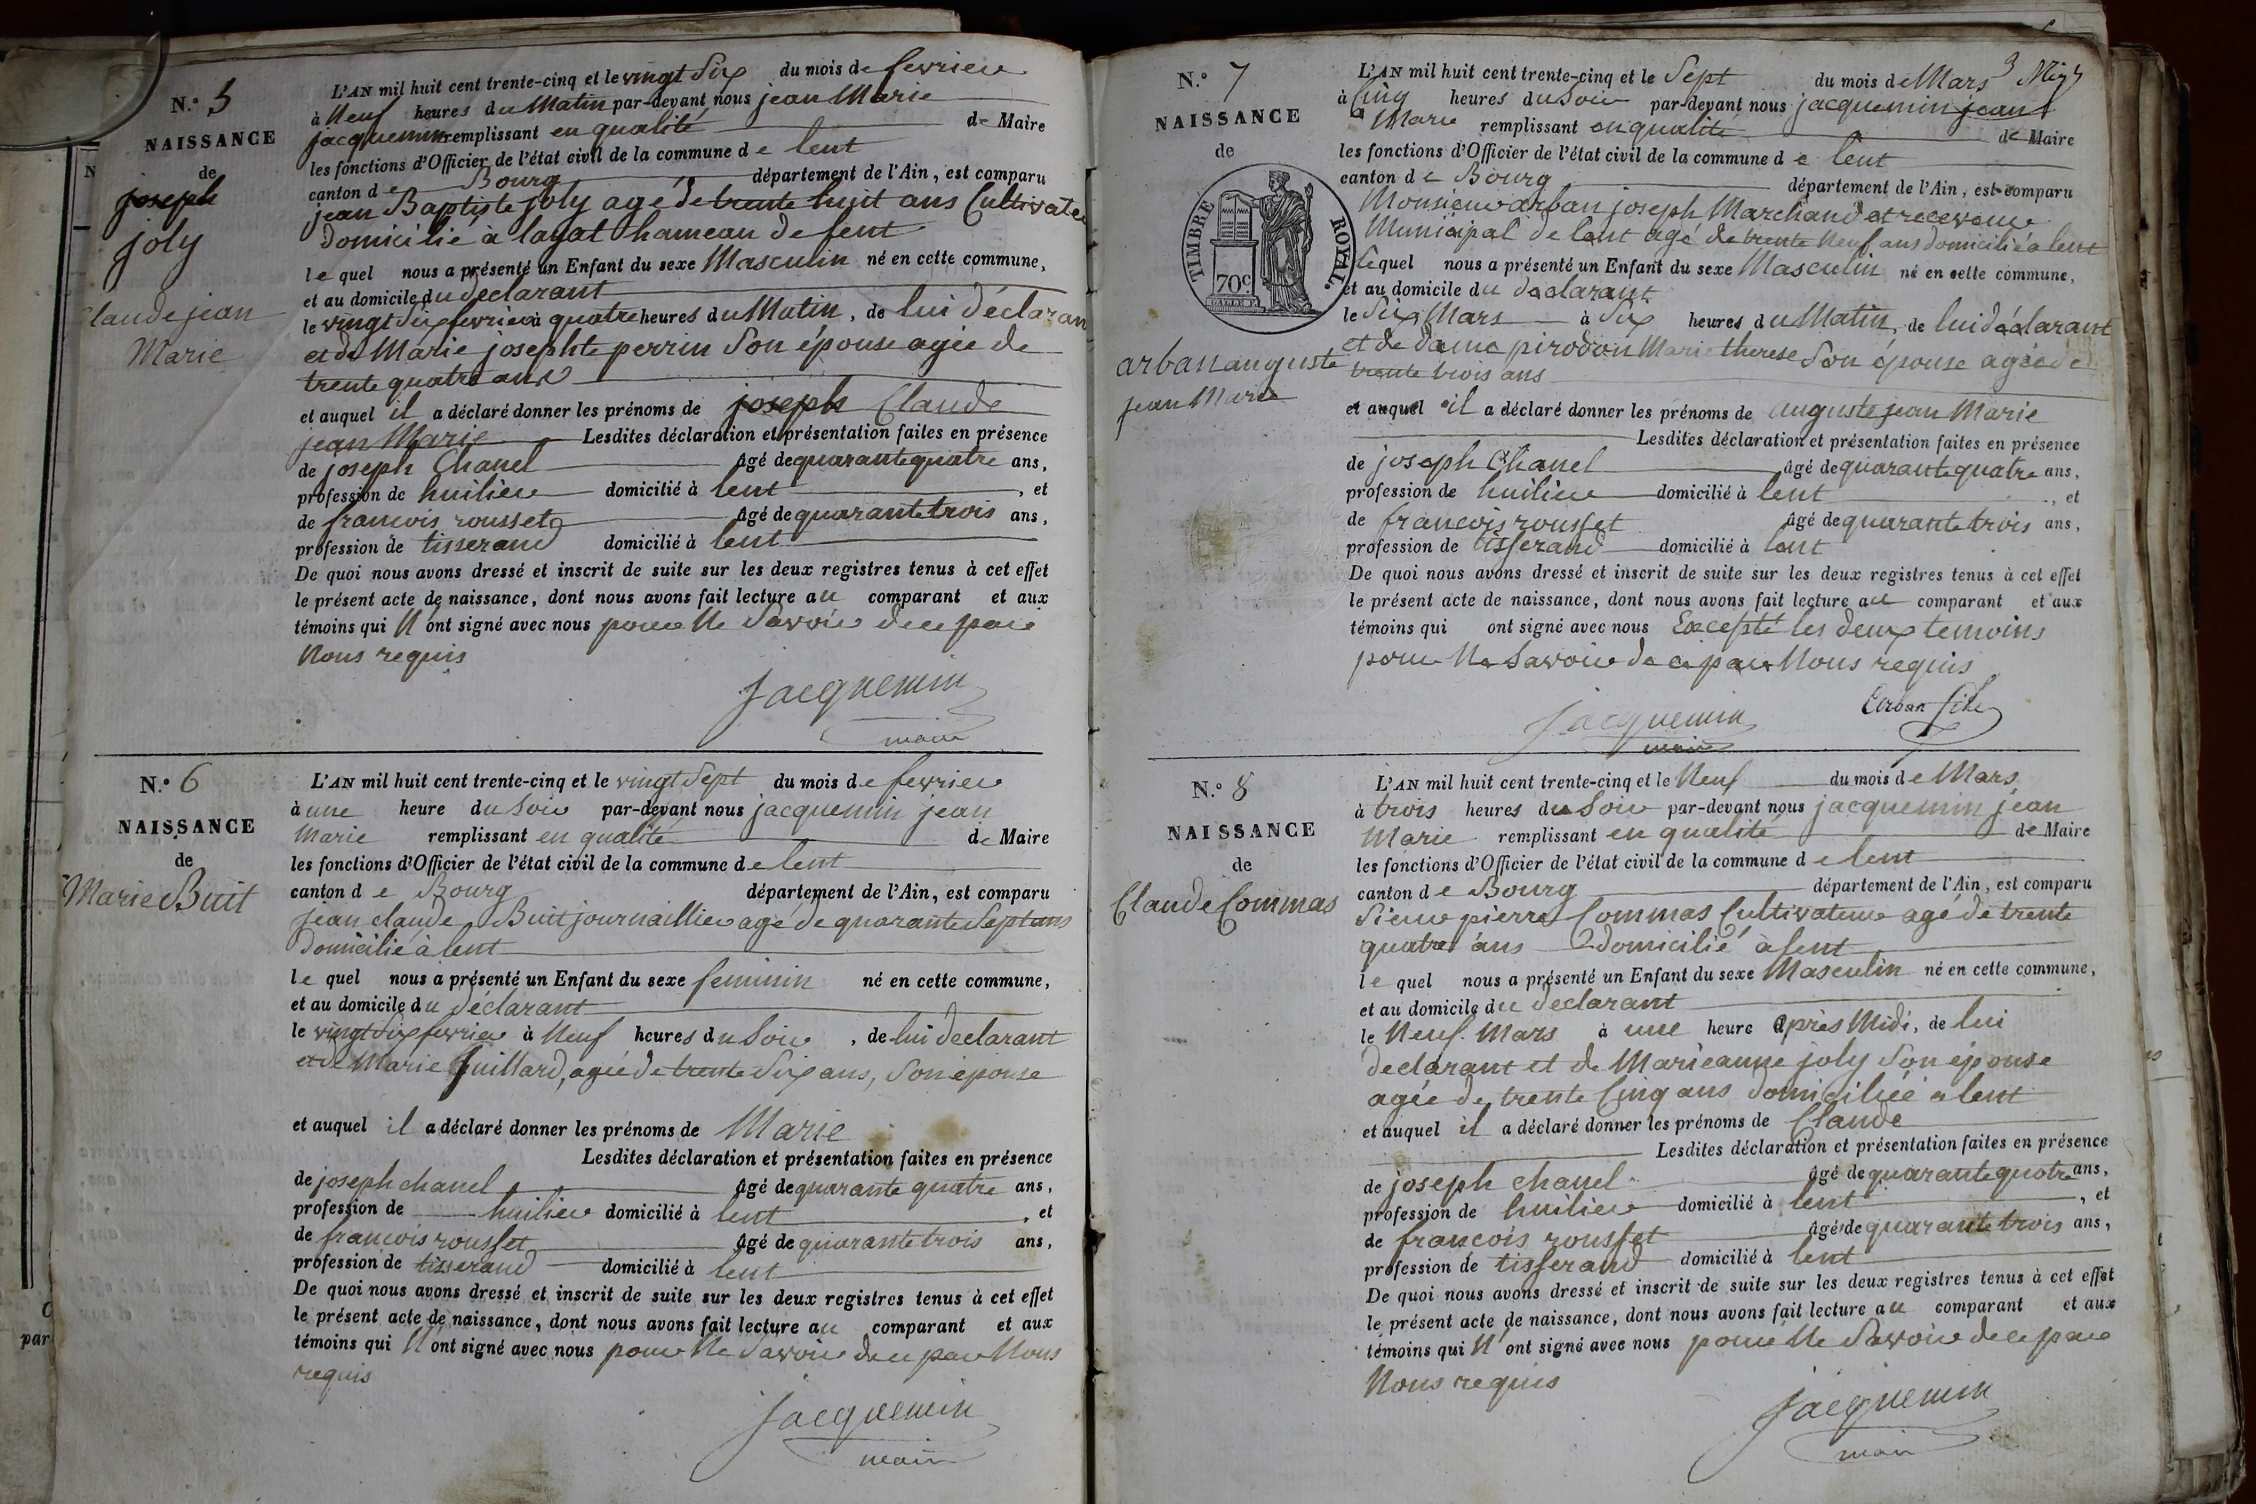 N.° 5
NAISSANCE
de
joseph
joly
Claude jean
Marie
L'AN mil huit cent trente-cinq et le vingt Six du mois de fevrier
à Neuf heures du Matin par-devant nous jean Marie
jacquemin remplissant en qualité de Maire
les fonctions d'Officier de l'état civil de la commune de lent
canton de Bourg département de l'Ain, est comparu
jean Baptiste joly agé de trente huit ans Cultivateur
domicilié à lagat hameau de lent
le quel nous a présenté un Enfant du sexe Masculin né en cette commune,
et au domicile du déclarant
le vingt Six fevrier à quatre heures du Matin, de lui déclarant
et de Marie josephte perrin Son épouse agée de
trente quatre ans
et auquel il a déclaré donner les prénoms de joseph Claude
jean Marie Lesdites déclaration et présentation faites en présence
de joseph Chanel âgé de quarante quatre ans,
profession de huilier domicilié à lent, et
de francois rousset âgé de quarante trois ans,
profession de tisserand domicilié à lent
De quoi nous avons dressé et inscrit de suite sur les deux registres tenus à cet effet
le présent acte de naissance, dont nous avons fait lecture au comparant et aux
témoins qui N'ont signé avec nous pour Ne Savoir de ce par
Nous requis
Jacquemin
maire
N.° 6
NAISSANCE
de
Marie Buit
L'AN mil huit cent trente-cinq et le vingt Sept du mois de fevrier
à une heure du Soir par-devant nous jacquemin jean
Marie remplissant en qualité de Maire
les fonctions d'Officier de l'état civil de la commune de lent
canton de Bourg département de l'Ain, est comparu
jean claude Buit journaillier agé de quarante Sept ans
domicilié à lent
le quel nous a présenté un Enfant du sexe feminin né en cette commune,
et au domicile du déclarant
le vingt Six fevrier à Neuf heures du Soir, de lui declarant
et de Marie fuillard, agée de trente Six ans, Son épouse
et auquel il a déclaré donner les prénoms de Marie
Lesdites déclaration et présentation faites en présence
de joseph chanel âgé de quarante quatre ans,
profession de huilier domicilié à lent, et
de francois rousset âgé de quarante trois ans,
profession de tisserand domicilié à lent
De quoi nous avons dressé et inscrit de suite sur les deux registres tenus à cet effet
le présent acte de naissance, dont nous avons fait lecture au comparant et aux
témoins qui N'ont signé avec nous pour Ne Savoir de ce par Nous
requis
Jacquemin
maire
N.° 7
NAISSANCE
de
TIMBRE ROYAL.
70c
arban auguste
jean Marie
L'AN mil huit cent trente-cinq et le Sept du mois de Mars
à Cinq heures du Soir par-devant nous jacquemin jean
Marie remplissant en qualité de Maire
les fonctions d'Officier de l'état civil de la commune de lent
canton de Bourg département de l'Ain, est comparu
Monsieur arban joseph Marchand et receveur
Municipal de lent agé de trente Neuf ans domicilié à lent
lequel nous a présenté un Enfant du sexe Masculin né en cette commune,
et au domicile du declarant
le Six Mars à Six heures du Matin, de lui déclarant
et de dame pirodon Marie therese Son épouse agée de
trente trois ans
et auquel il a déclaré donner les prénoms de auguste jean Marie
Lesdites déclaration et présentation faites en présence
de joseph Chanel âgé de quarante quatre ans,
profession de huilier domicilié à lent, et
de francois rousset âgé de quarante trois ans,
profession de tisserand domicilié à lent
De quoi nous avons dressé et inscrit de suite sur les deux registres tenus à cet effet
le présent acte de naissance, dont nous avons fait lecture au comparant et aux
témoins qui ont signé avec nous Excepté les deux temoins
pour Ne Savoir de ce par Nous requis
Jacquemin
maire
Arban fils
N.° 8
NAISSANCE
de
Claude Commas
L'AN mil huit cent trente-cinq et le Neuf du mois de Mars
à trois heures du Soir par-devant nous jacquemin jean
Marie remplissant en qualité de Maire
les fonctions d'Officier de l'état civil de la commune de lent
canton de Bourg département de l'Ain, est comparu
Sieur pierre Commas Cultivateur agé de trente
quatre ans domicilié à lent
le quel nous a présenté un Enfant du sexe Masculin né en cette commune,
et au domicile du declarant
le Neuf Mars à une heure après Midi, de lui
declarant et de Marieanne joly Son épouse
agée de trente Cinq ans domiciliée a lent
et auquel il a déclaré donner les prénoms de Claude
Lesdites déclaration et présentation faites en présence
de joseph chanel âgé de quarante quatre ans,
profession de huilier domicilié à lent, et
de francois rousset âgé de quarante trois ans,
profession de tisserand domicilié à lent
De quoi nous avons dressé et inscrit de suite sur les deux registres tenus à cet effet
le présent acte de naissance, dont nous avons fait lecture au comparant et aux
témoins qui N'ont signé avec nous pour Ne Savoir de ce par
Nous requis
Jacquemin
maire